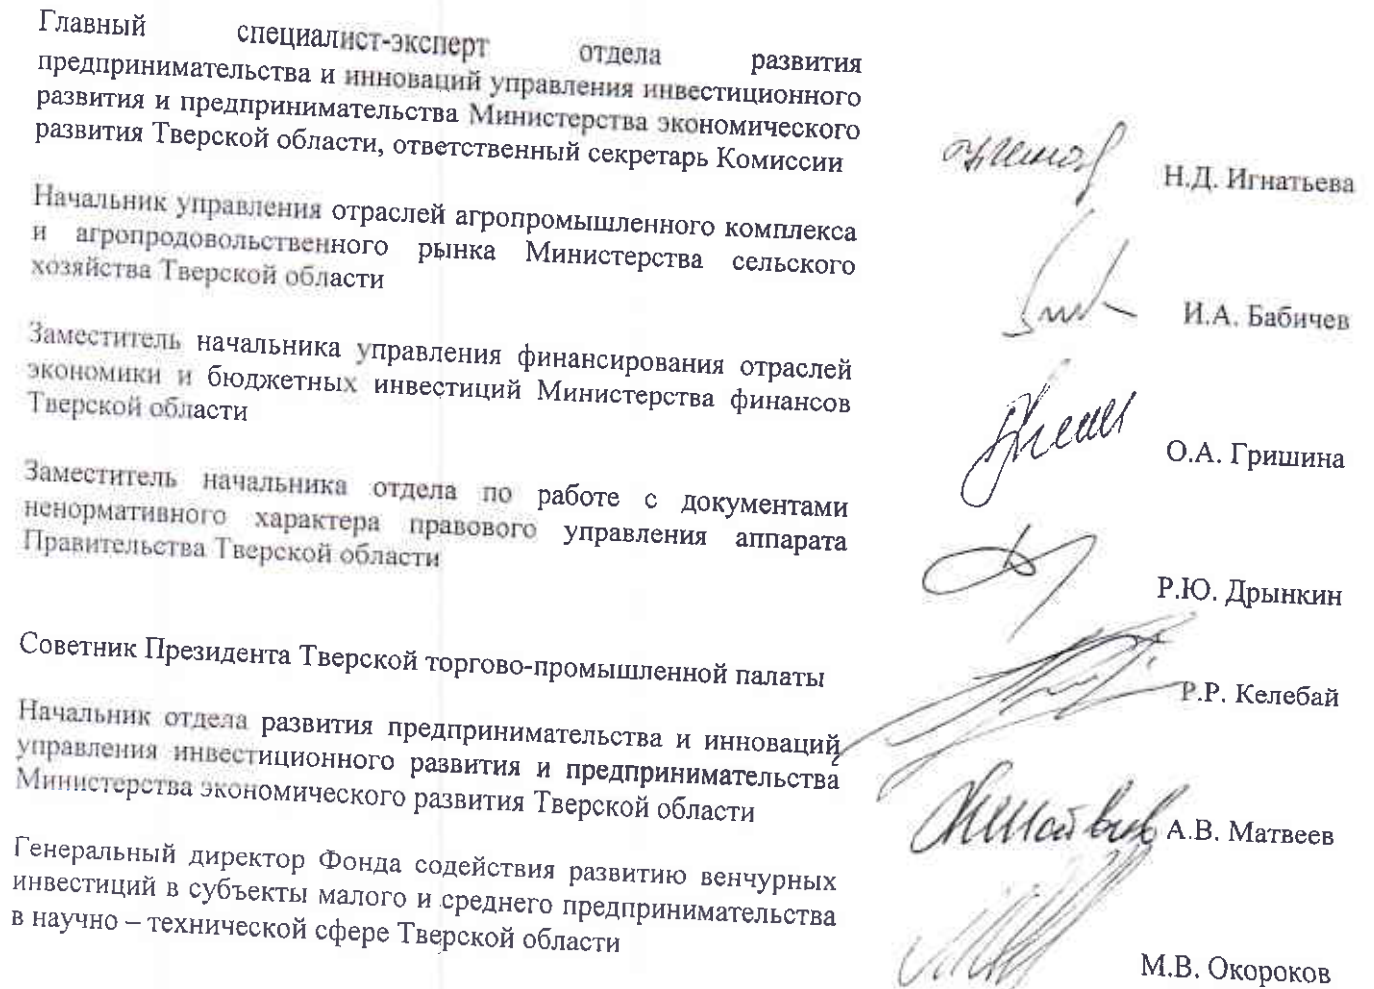 Главный специалист-эксперт отдела развития
предпринимательства и инноваций управления инвестиционного
развития и предпринимательства Министерства экономического
развития Тверской области, ответственный секретарь Комиссии
Н.Д. Игнатьева
Начальник управления отраслей агропромышленного комплекса
и агропродовольственного рынка Министерства сельского
хозяйства Тверской области
И.А. Бабичев
Заместитель начальника управления финансирования отраслей
экономики и бюджетных инвестиций Министерства финансов
Тверской области
О.А. Гришина
Заместитель начальника отдела по работе с документами
ненормативного характера правового управления аппарата
Правительства Тверской области
Р.Ю. Дрынкин
Советник Президента Тверской торгово-промышленной палаты
Р.Р. Келебай
Начальник отдела развития предпринимательства и инноваций
управления инвестиционного развития и предпринимательства
Министерства экономического развития Тверской области
А.В. Матвеев
Генеральный директор Фонда содействия развитию венчурных
инвестиций в субъекты малого и среднего предпринимательства
в научно – технической сфере Тверской области
М.В. Окороков